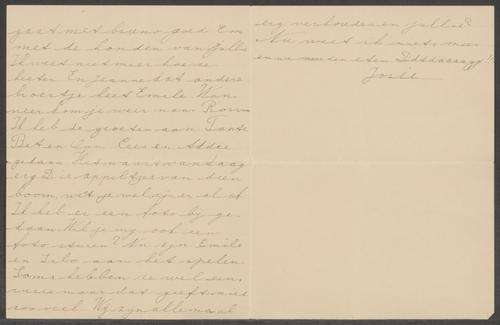 gaat met bruno goed En
met de honden van Jullie
Ik weet niet meer hoe ze
heeten En Jeanne dat andere
broertje heet Emile Wan
neer kom je weer naar
Ik heb de groeten aan Tante
Bet en Oom Cees en Addee
gedaan Het waait vandaag
erg Die appeltjes van dien
boom, weet je wel zijn er al af
Ik heb er een foto by ge
daan Wil je my ook een
foto sturen? Nu zyn Emile
en Lilo aan het spelen
Soms hebben ze wel eens
ruzie maar dat geeft niet
zoo veel Wy zyn allemaal
erg verkouden en jullie?
Nu weet ik niets meer
en we moeten eten Ddddaaaagg!!
Josie